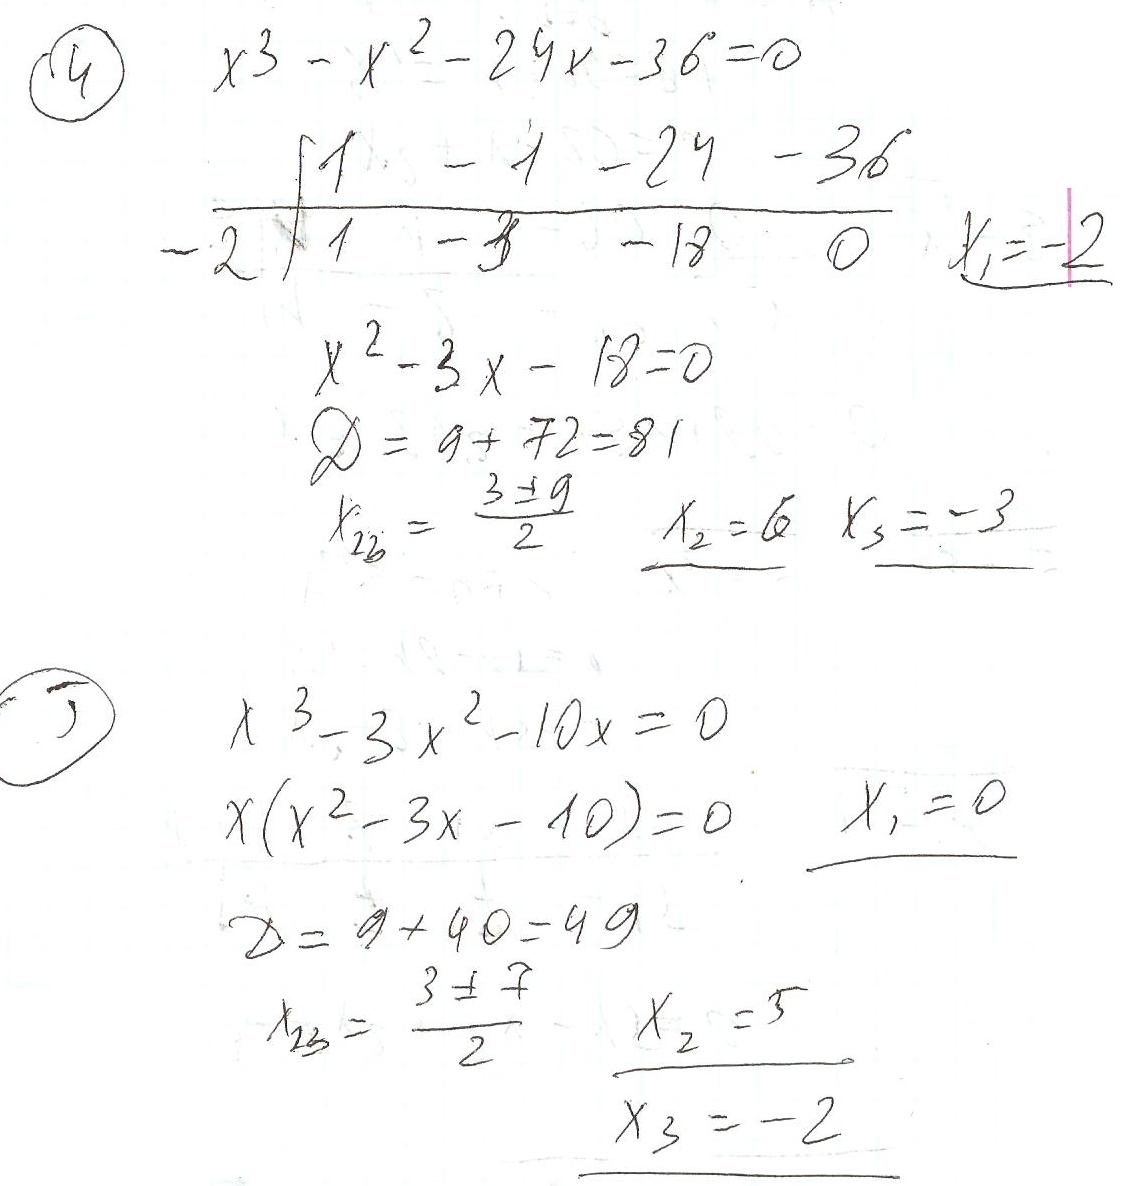 4 x³ - x² - 24x - 36 = 0
1 -1 -24 -36
-2 1 -3 -18 0 x₁ = -2
x² - 3x - 18 = 0
D = 9 + 72 = 81
x₂₃ = (3 ± 9)/2 x₂ = 6 x₃ = -3
5 x³ - 3x² - 10x = 0
x(x² - 3x - 10) = 0 x₁ = 0
D = 9 + 40 = 49
x₂₃ = (3 ± 7)/2 x₂ = 5
x₃ = -2